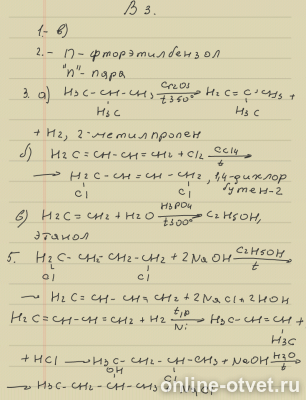 В 3.
1.- в)
2.- П - фторэтилбензол
"п" - пара
3. а) H3C-CH-CH3 Cr2O3 H2C = C-CH3 +
t 350°
H3C H3C
+ H2, 2-метилпропен
б) H2C = CH-CH = CH2 + Cl2 CCl4
t
→ H2C-CH = CH-CH2, 1,4-дихлор
Cl Cl бутен-2
в) H2C = CH2 + H2O H3PO4 → C2H5OH,
t300°
этанол
5. H2C-CH2-CH2-CH2 + 2NaOH C2H5OH
t
Cl Cl
→ H2C = CH-CH = CH2 + 2NaCl + 2HOH
H2C = CH-CH = CH2 + H2 t,p H3C-CH=CH +
Ni
H3C
+ HCl → H3C-CH2-CH-CH3 + NaOH H2O
t
OH Cl
→ H3C-CH2-CH-CH3 + NaCl
online-otvet.ru